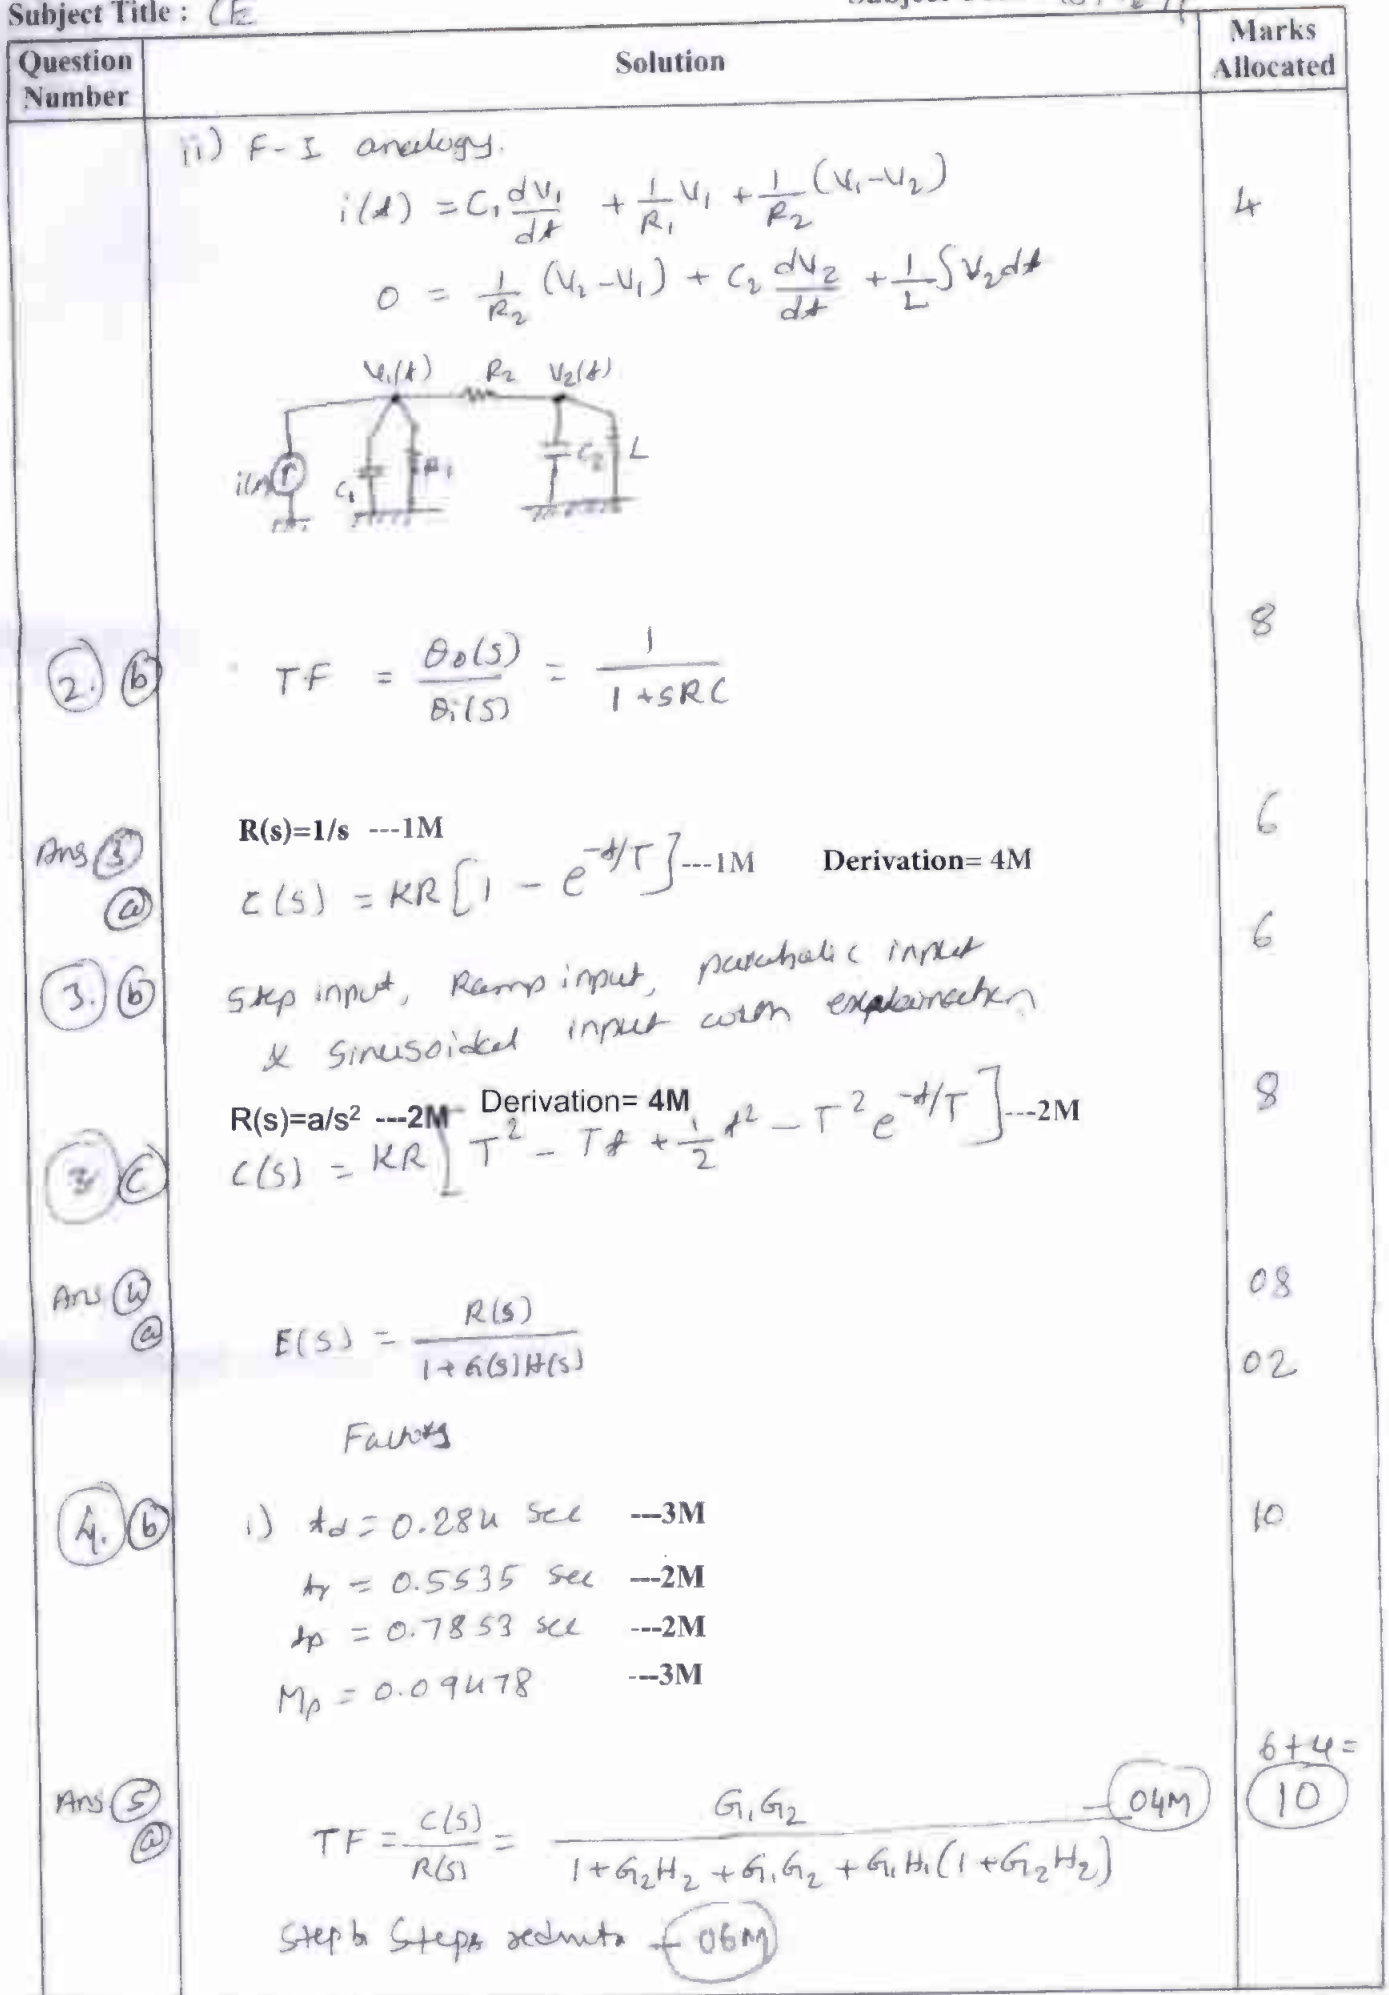 Subject Title : CE
Question Number
Solution
Marks Allocated
ii) F-I analogy.
i(t) = C₁ dV₁/dt + 1/R₁ V₁ + 1/R₂ (V₁-V₂)
4
0 = 1/R₂ (V₂-V₁) + C₂ dV₂/dt + 1/L ∫V₂dt
V₁(t) R₂ V₂(t)
i(t) C₁ R₁ C₂ L
2. b
TF = θo(s)/θi(s) = 1/(1+sRC)
8
Ans 3 a
R(s)=1/s ---1M
6
C(s) = KR[1 - e^(-t/T)] ---1M Derivation= 4M
3. b
Step input, Ramp input, parabolic input
6
& sinusoidal input with explaination
3 c
R(s)=a/s² ---2M Derivation= 4M
8
C(s) = KR[T² - Tt + 1/2 t² - T² e^(-t/T)] ---2M
Ans 4 a
E(S) = R(s)/(1+G(s)H(s))
08
02
Factors
4. b
i) td = 0.284 sec ---3M
10
tr = 0.5535 sec ---2M
tp = 0.7853 sec ---2M
Mp = 0.09478 ---3M
Ans 5 a
TF = C(s)/R(s) = G₁G₂/(1+G₂H₂+G₁G₂+G₁H₁(1+G₂H₂)) - 04M
6+4=
10
Step by Steps - 06M